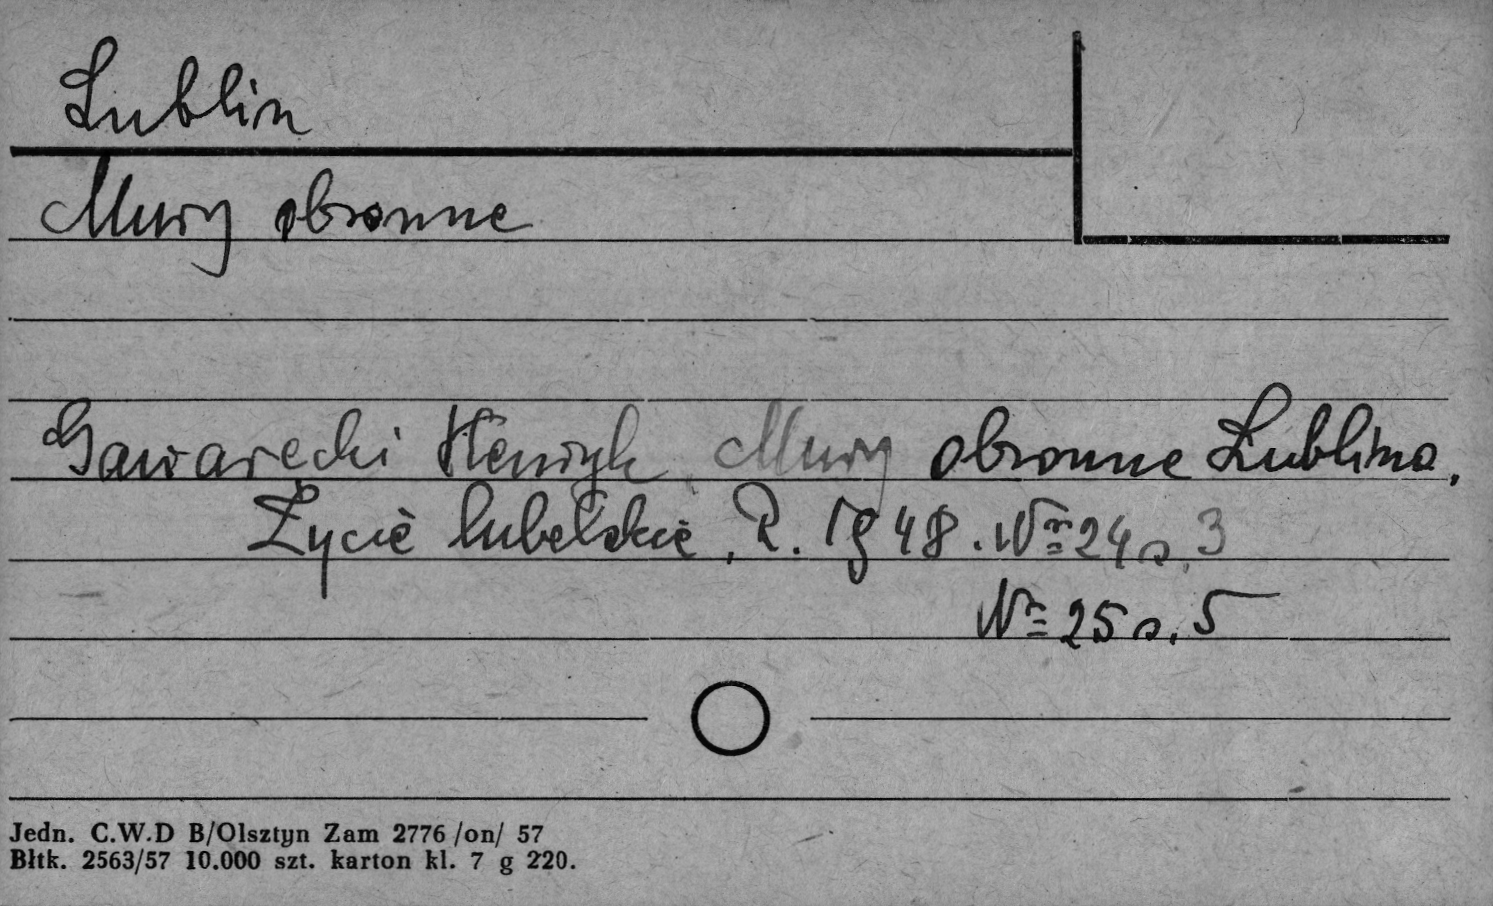 Lublin
Mury obronne
Gawarecki Henryk Mury obronne Lublina,
Życie lubelskie, R. 1948. Nr 24 s. 3
Nr 25 s. 5
Jedn. C.W.D B/Olsztyn Zam 2776 /on/ 57
Błtk. 2563/57 10.000 szt. karton kl. 7 g 220.